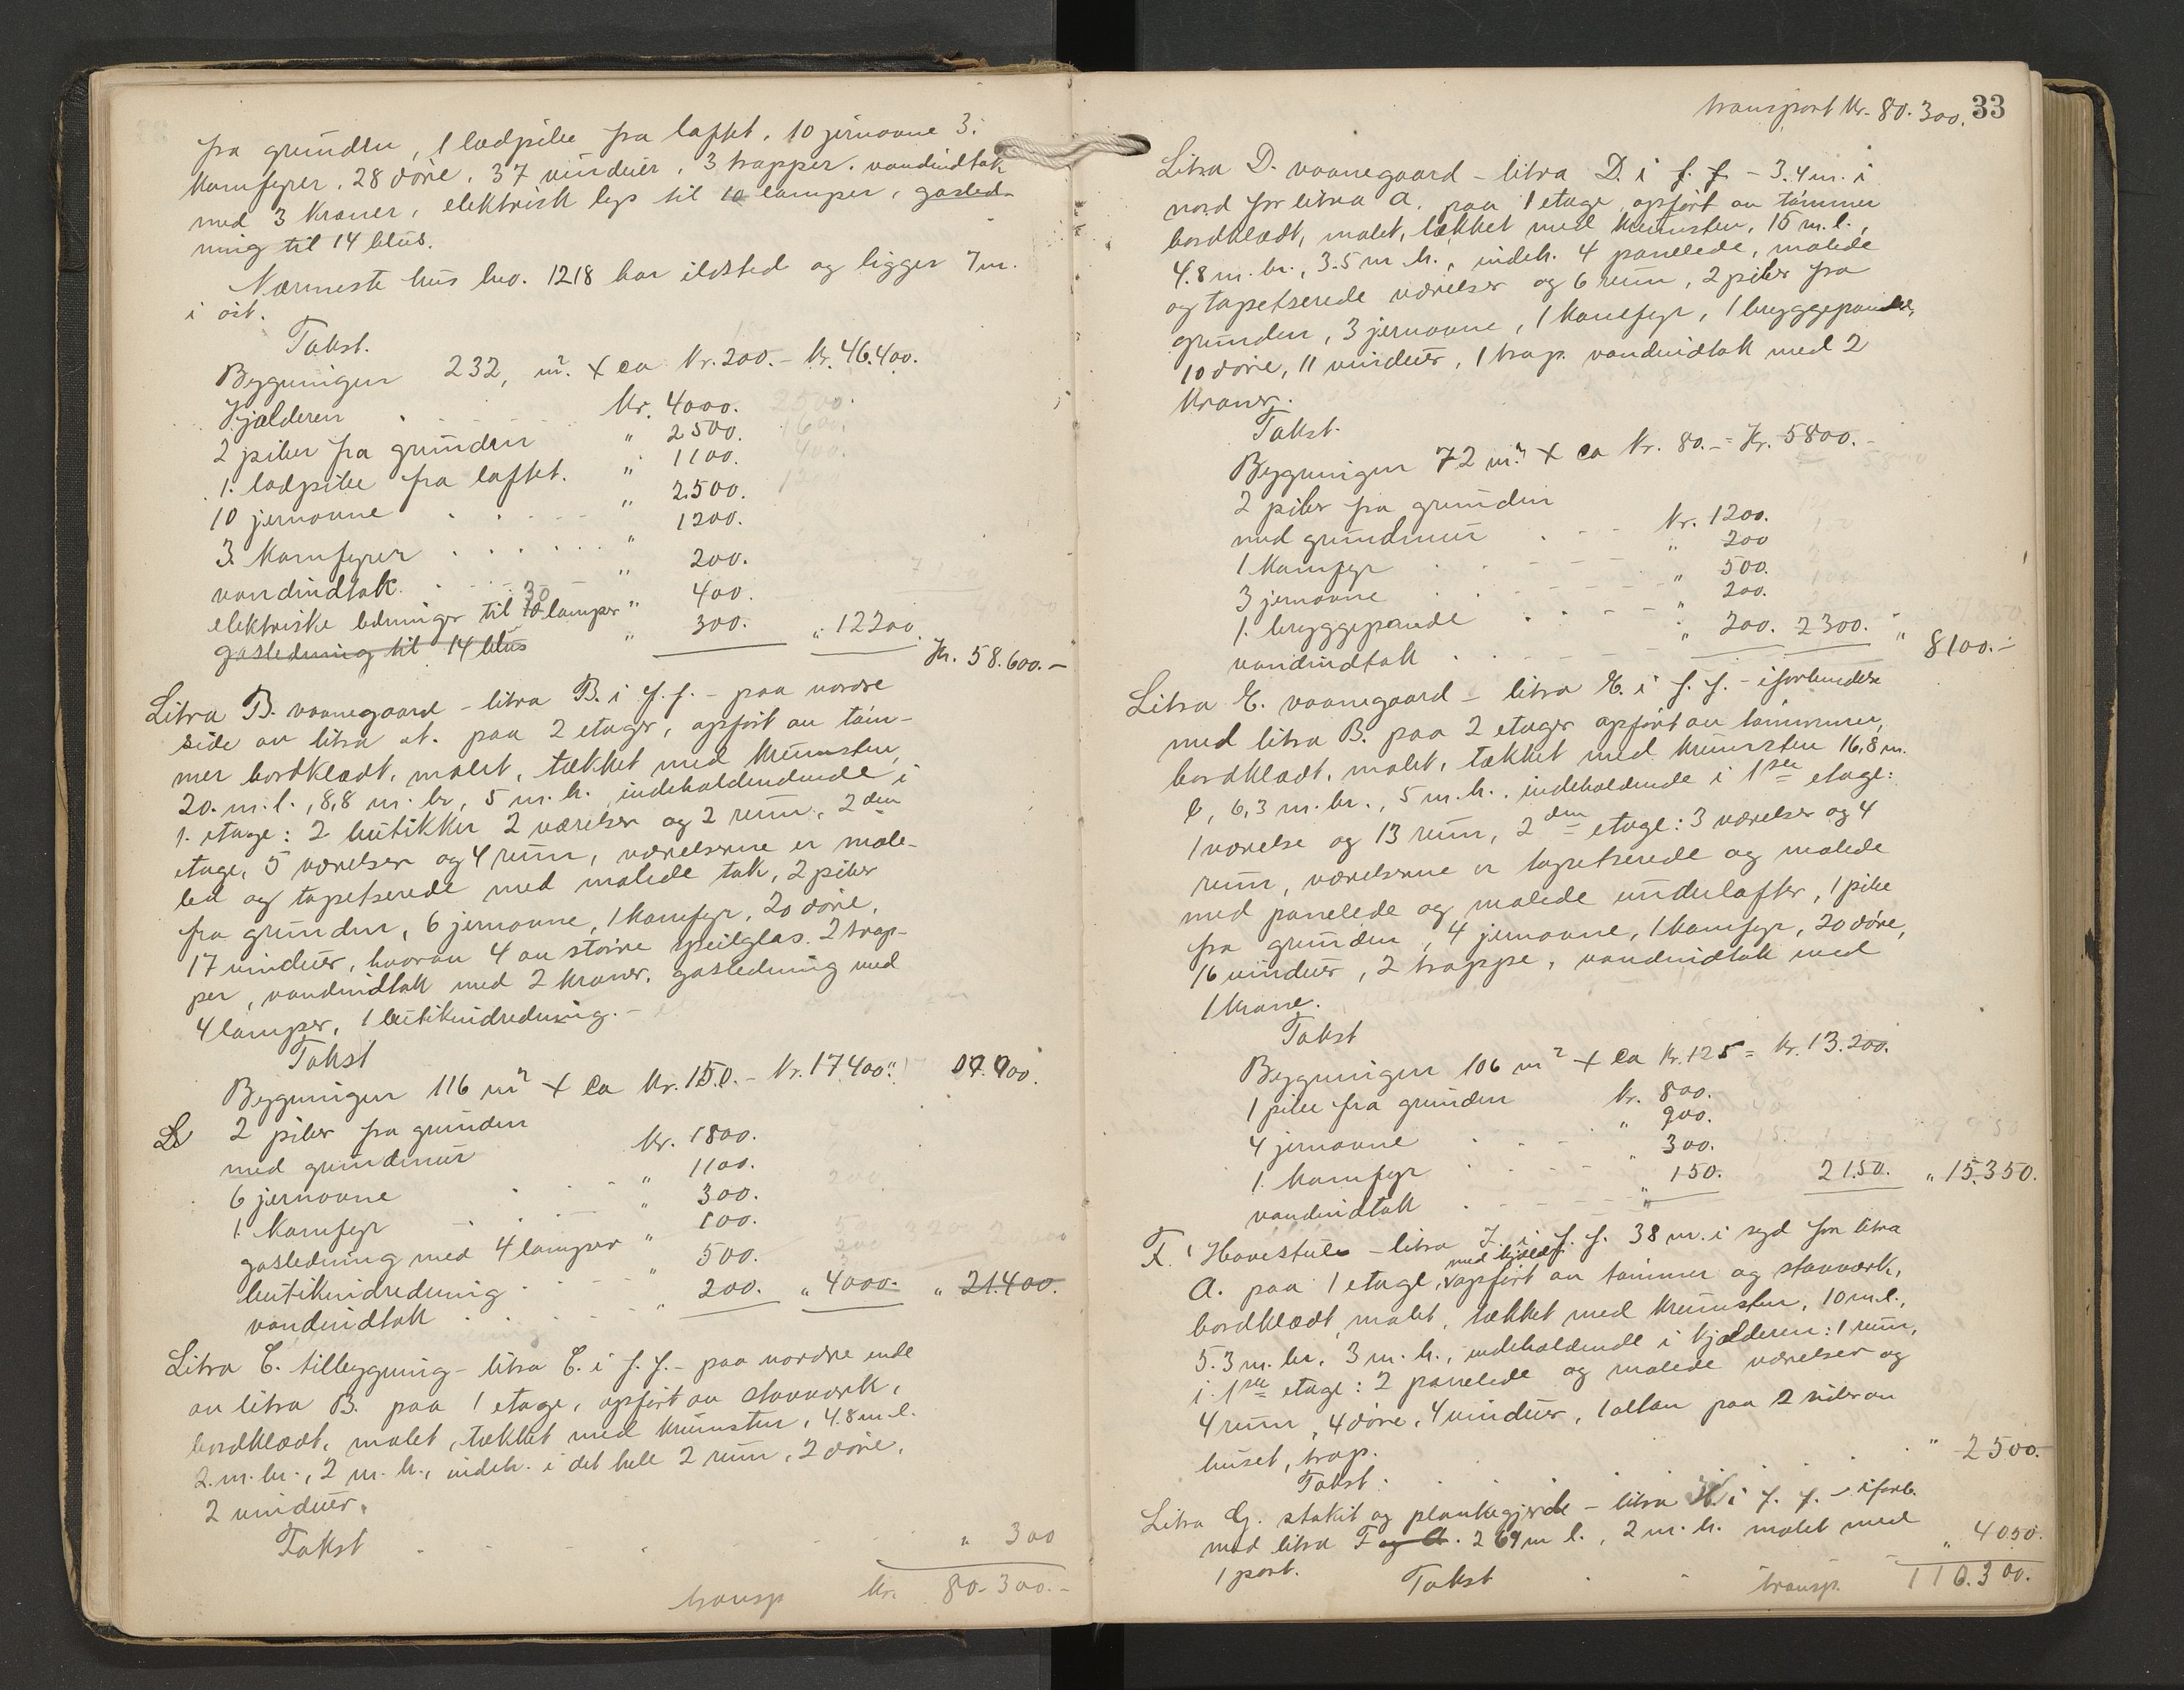 fra grunden, 1 lædpibe fra loftet, 10 jernovne 3.
Komfyrer, 28 døre, 37 vinduer, 3 trapper, vandindtak
med 3 kraner, elektrisk lys til 10 lamper, gasled-
ning til 14 blus.
Nærmeste hus no. 1218 har ildsted og ligger 7 m.
i øst.
Takst.
Bygningen 232, m². x ca Kr. 200.- Kr. 46.400.
Kjælderen Kr. 4000.
2 piber fra grunden " 2500.
1. lædpibe fra loftet. " 1100.
10 jernovne " 2500.
3. Komfyrer " 1200.
vandindtak. " 200.
elektriske ledninger til 30 lamper " 400.
gasledning til 14 blus " 300. " 12200.
Kr. 58.600.-
Litra B. vaanegaard - litra B. i f. f. - paa nordre
side av litra A. paa 2 etager, opført av tøm-
mer bordklædt, malet, tækket med krumsten,
20. m. l., 8,8 m. br, 5 m. h. indeholdendende i
1. etage: 2 butikker 2 værelser og 2 rum, 2den
etage, 5 værelser og 4 rum, værelserne er male-
led og tapetserede med malede tak, 2 piber
fra grunden, 6 jernovne, 1 komfyr, 20 døre,
17 vinduer, hvorav 4 av større speilglas. 2 trap-
per, vandindtak med 2 kraner, gasledning med
4 lamper, 1 butikindredning. -
Takst
Bygningen 116 m² x ca Kr. 150. - Kr. 17400.
2 piber fra grunden
med grundmur Kr. 1800.
6 jernovne " 1100.
1. Komfyr " 300.
gasledning med 4 lamper " 100.
butikindredning " 500.
vandindtak " 200. " 4000.- " 21.400.
Litra C. tilbygning - litra C. i f. f. - paa nordre ende
av litra B. paa 1 etage, opført av stavværk,
bordklædt, malet, tækket med krumsten, 4.8 m. l.
2. m. br., 2 m. h., indeh. i det hele 2 rum, 2 døre,
2 vinduer.
Takst " 300
transp kr. 80.300.-
transport Kr. 80.300. 33
Litra D. vaanegaard - litra D. i f. f. - 3.4 m. i
nord for litra A. paa 1 etage, opført av tømmer
bordklædt, malet, tækket med krumsten, 15 m. l.,
4.8 m. br., 3.5 m. h., indeh. 4 panelede, malede
og tapetserede værelser og 6 rum, 2 piber fra
grunden, 3 jernovne, 1 komfyr, 1 bryggepande,
10 døre, 11 vinduer, 1 trap. vandindtak med 2
kraner.
Takst.
Bygningen 72 m² x ca Kr. 80.- = Kr. 5800.-
2 piber fra grunden
med grundmur Kr. 1200.
1 Komfyr " 200
3 jernovne " 500.
1. bryggepande " 200.
vandindtak " 200. 2300. " 8100.-
Litra E. vaanegaard - litra E. i f. f. - i forbindelse
med litra B. paa 2 etager opført av tømmer,
bordklædt, malet, tækket med krumsten 16,8 m.
l, 6,3 m. br., 5 m. h., indeholdende i 1ste etage:
1 værelse og 13 rum, 2den etage: 3 værelser og 4
rum, værelserne er tapetserede og malede
med panelede og malede underlofter, 1 pibe
fra grunden, 4 jernovne, 1 komfyr, 20 døre,
16 vinduer, 2 trappe, vandindtak med
1 krane.
Takst
Bygningen 106 m² x ca Kr. 125 = Kr. 13.200.
1 pibe fra grunden Kr. 800.
4 jernovne " 900.
1. Komfyr " 300.
vandindtak " 150. 2150. " 15.350.
F. Havestue - litra F. i f. f. 38 m. i syd for litra
A. paa 1 etage, med kjælder opført av tømmer og stavværk,
bordklædt, malet, tækket med krumsten, 10 m. l.,
5.3 m. br. 3 m. h., indeholdende i kjælderen: 1 rum,
i 1ste etage: 2 panelede og malede værelser og
4 rum, 4 døre, 4 vinduer, 1 altan paa 2 sider av
huset, trap.
Takst: " 2500.
Litra G. stakit og plankegjerde - litra i f. f. - i forb.
med litra F og A. 269 m l., 2 m. h. malet med
1 port. Takst " 4050.
transp. 110.300.